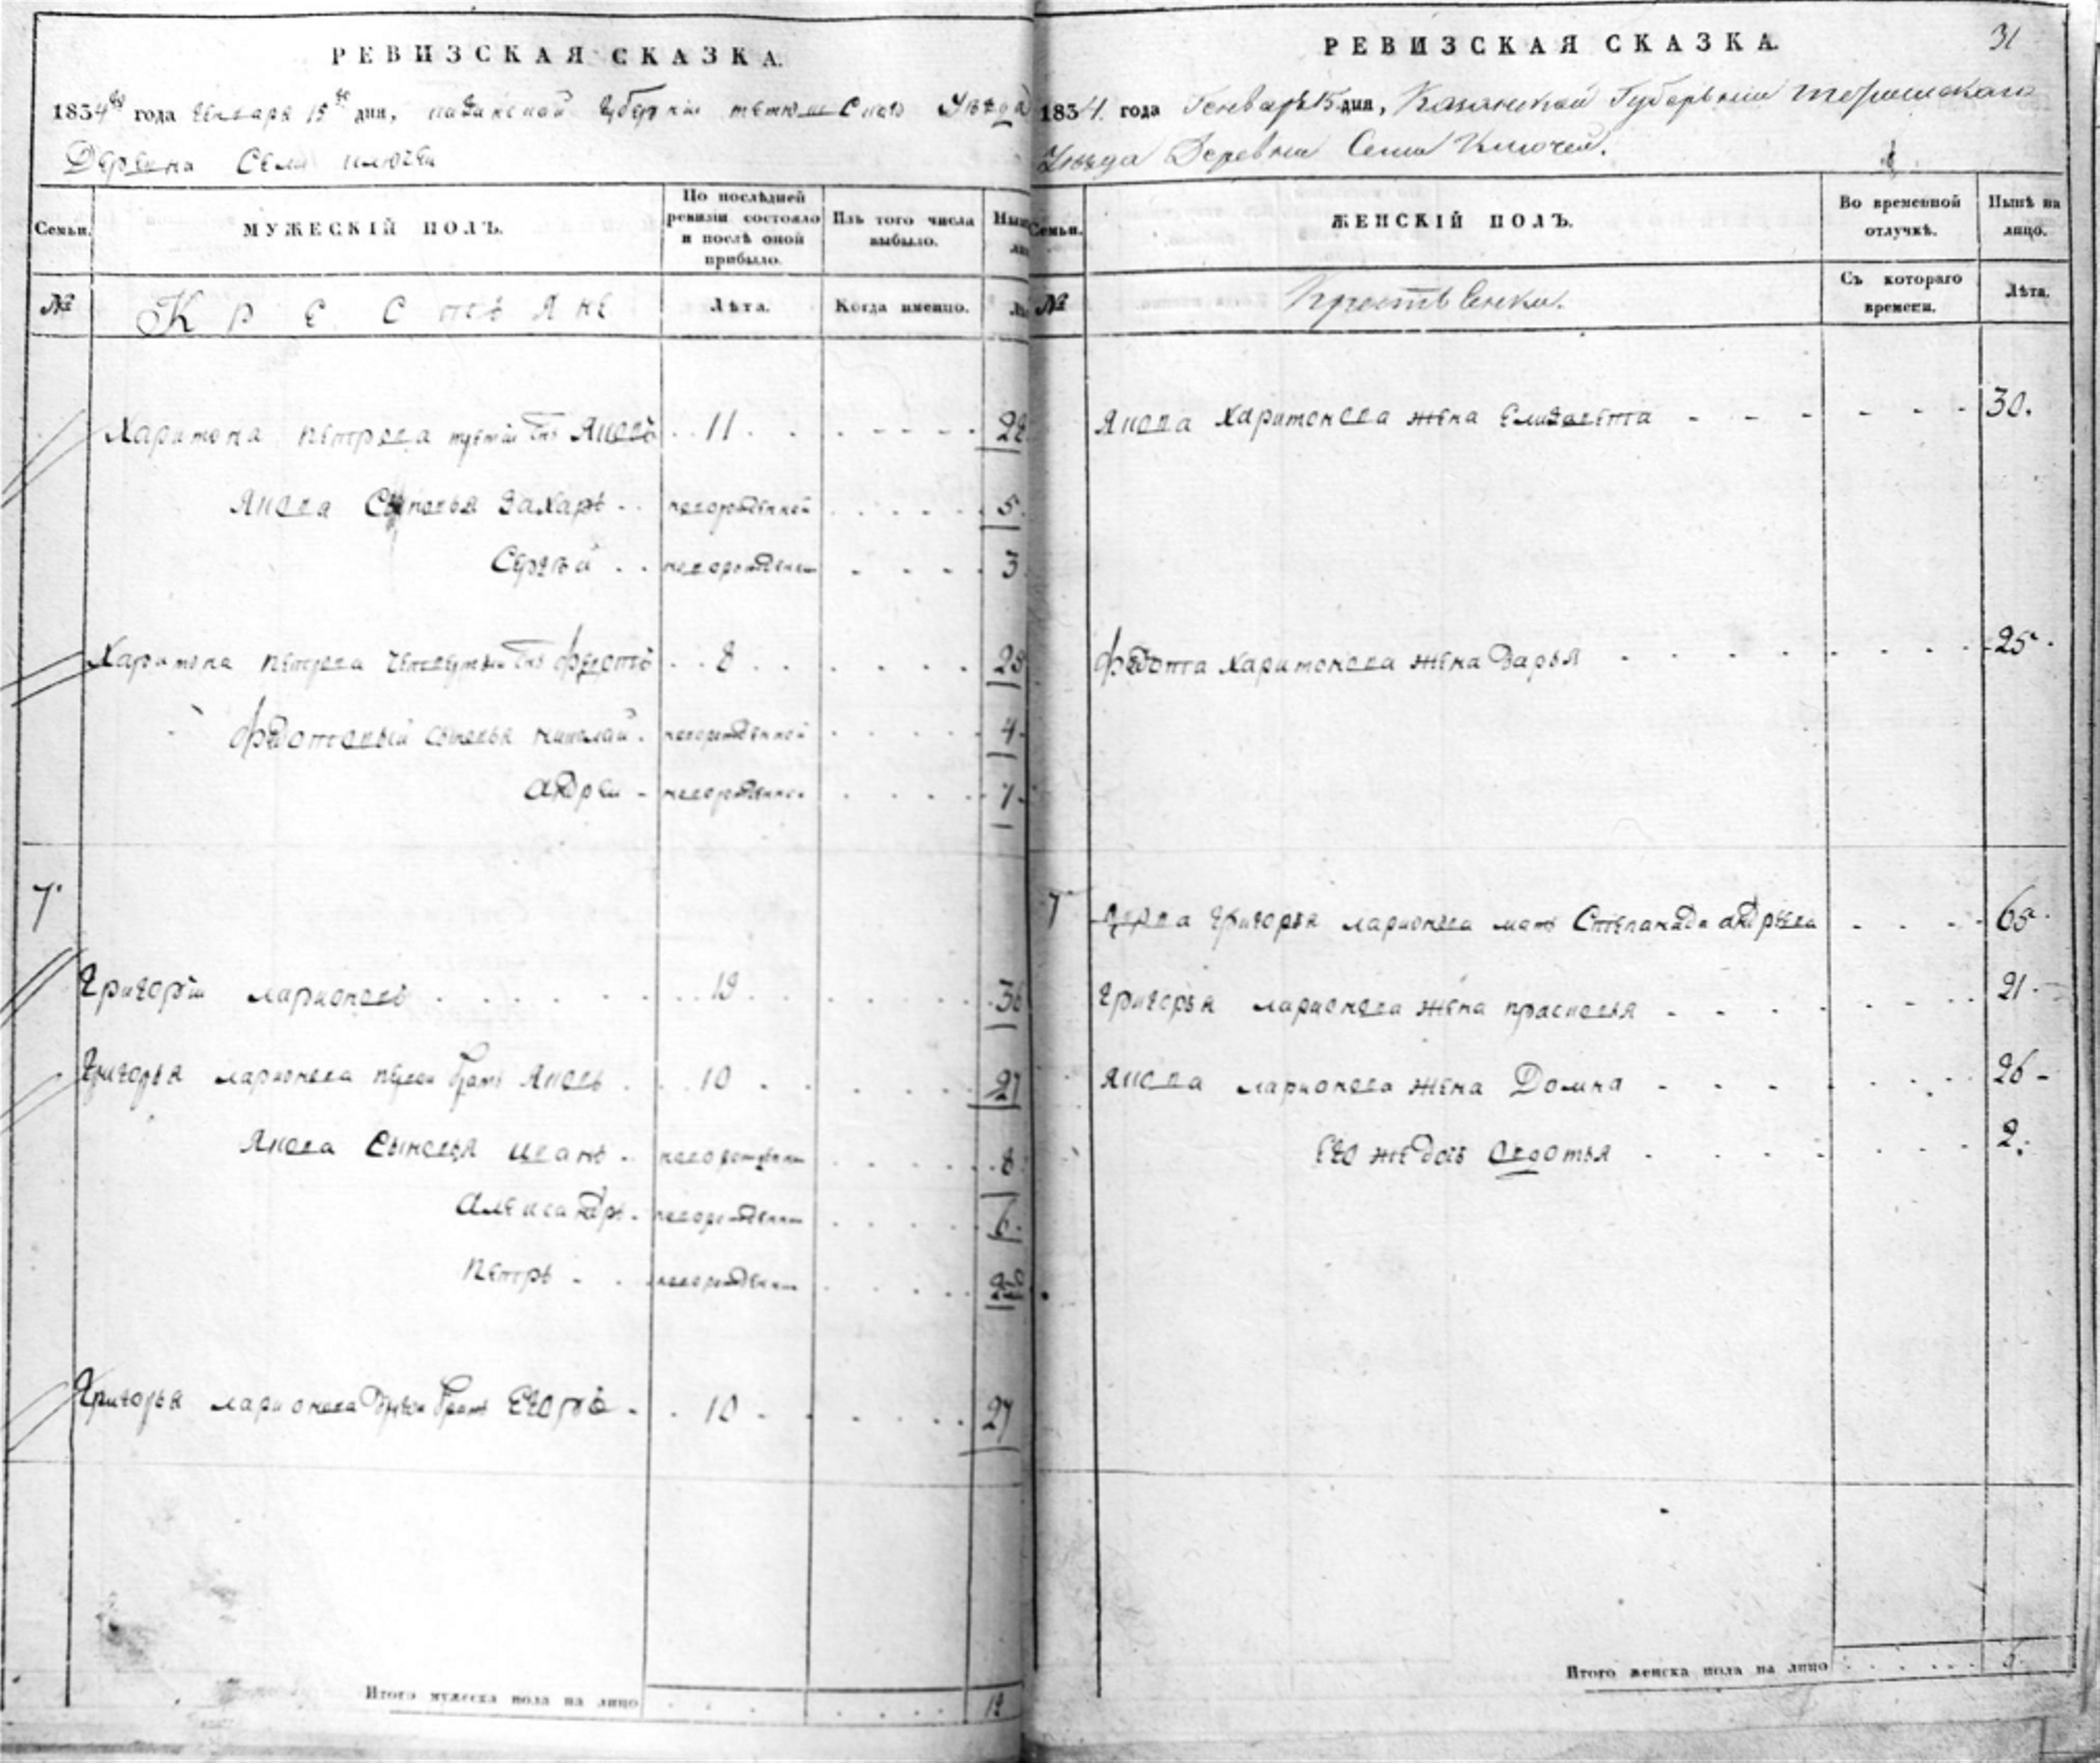 РЕВИЗСКАЯ СКАЗКА.
1834го года Генваря 15го дня, казанской губернии тетюшскаго Уезда
Деревна Семи ключеи
Семьи.
МУЖЕСКІЙ ПОЛЪ.
По послѣдней ревизіи состояло и послѣ оной прибыло.
Изъ того числа выбыло.
№
Крестьяне
Лѣта.
Когда именно.
Харитона петрова третіи снъ Яковъ . . 11 . . . 28
Якова Сыновья Захаръ . . новорожденной . . . 5
Сергѣй . . новорожден . . . 3
Харитона петрова четвертыи снъ федотъ . . 8 . . . 25
федотовый сыновья николай . новорожденной . . . 4
андреи - новорожденно . . . 1
7
Григоріи ларионовъ . . . 19 . . . 36
Григорья ларионова первои братъ Яковъ . . 10 . . . 27
Якова Сыновья иванъ . новорожденн . . . 8
александръ . новорожденн . . . 6
петръ . . новорожденн
Григорья ларионова другои братъ Егоръ . . 10 . . . 27
Итого мужеска пола на лицо . . . 12
РЕВИЗСКАЯ СКАЗКА.
31
1834 года Генваря 15 дня, Казанской Губерніи Тетюшскаго
Уѣзда Деревни Семи Ключей.
Семьи.
ЖЕНСКІЙ ПОЛЪ.
Во временной отлучкѣ.
Нынѣ на лицо.
№
Крестьвенки.
Съ котораго времени.
Лѣта.
Якова Харитонова жена Елизавета - - - 30.
федота харитонова жена Дарья . . . 25
7
Григорья ларионова мать Степанида андреева . . . 65
Григорья ларионова жена прасковья - - - 21
Якова ларионова жена Домна - - - 26
Его же дочь Авдотья . . . 2.
Итого женска пола на лицо . . . 6